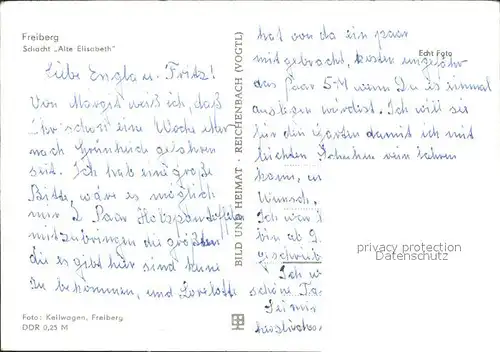 Freiberg
Schacht „Alte Elisabeth“
Liebe Engla u. Fritz!
Von Margit weiß ich, daß
Ihr schon eine Woche eher
nach Grünheide gefahren
seit. Ich hab eine große
Bitte, wäre es möglich
mir 2 Paar Holzpantoffeln
mitzubringen die größten
die es gibt hier sind keine
zu bekommen, und Lorelotte
Foto: Keilwagen, Freiberg
DDR 0,25 M
BILD UND HEIMAT · REICHENBACH (VOGTL)
hat von da ein paar
mitgebracht, kosten ungefähr
Echt Foto
das Paar 5 M wenn Du es einmal
auslegen würdest. Ich will sie
für den Garten damit ich mit
leichten Schuhen rein fahren
kann,
Wunsch.
Ich war
bin ab
geschrieb
Ich w
schöne
Sei mir
herzlichs
privacy protection
Datenschutz